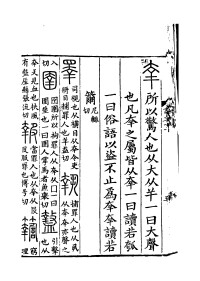 㚔所以驚人也从大从𢆉一曰大聲
也凡㚔之屬皆从㚔一曰讀若瓠
一曰俗語以盜不止為㚔㚔讀若
籋尼輒切
睪司視也从橫目从㚔令吏將目捕罪人也羊益切執捕罪人也从丮从㚔㚔亦聲之
入切圉囹圄所以拘罪人从㚔从囗一曰圉垂也一曰圉人掌馬者魚舉切盩引擊也从
㚔攴見血也扶風有盩厔縣張流切報當罪人也从㚔从𠬝𠬝服罪也博号切𥷚窮理